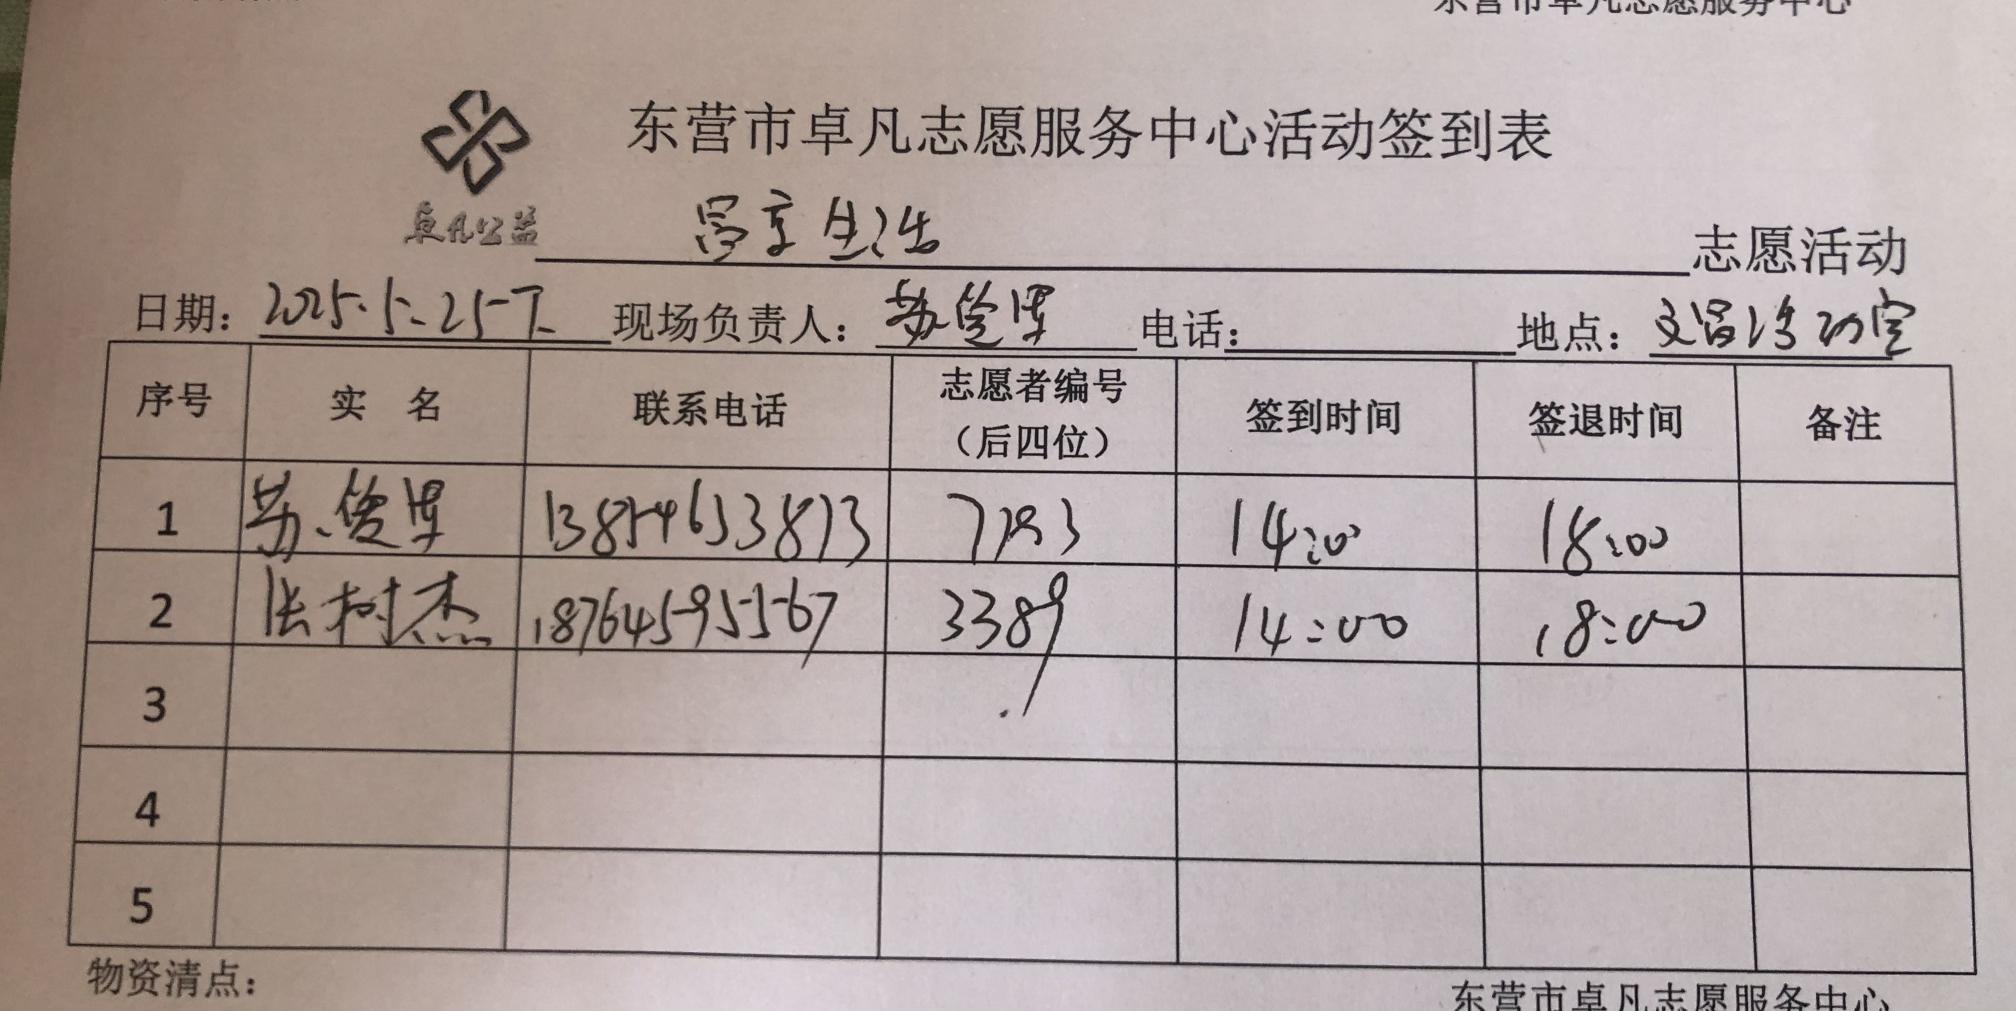 东营市卓凡志愿服务中心
东营市卓凡志愿服务中心活动签到表
卓凡公益
昌享生活 志愿活动
日期: 2025.5.25下 现场负责人: 苏俊军 电话: 地点: 文昌活动室
序号 实 名 联系电话 志愿者编号（后四位） 签到时间 签退时间 备注
1 苏俊军 13854653873 7193 14:00 18:00
2 张树杰 18764595567 3389 14:00 18:00
3
4
5
物资清点:
东营市卓凡志愿服务中心